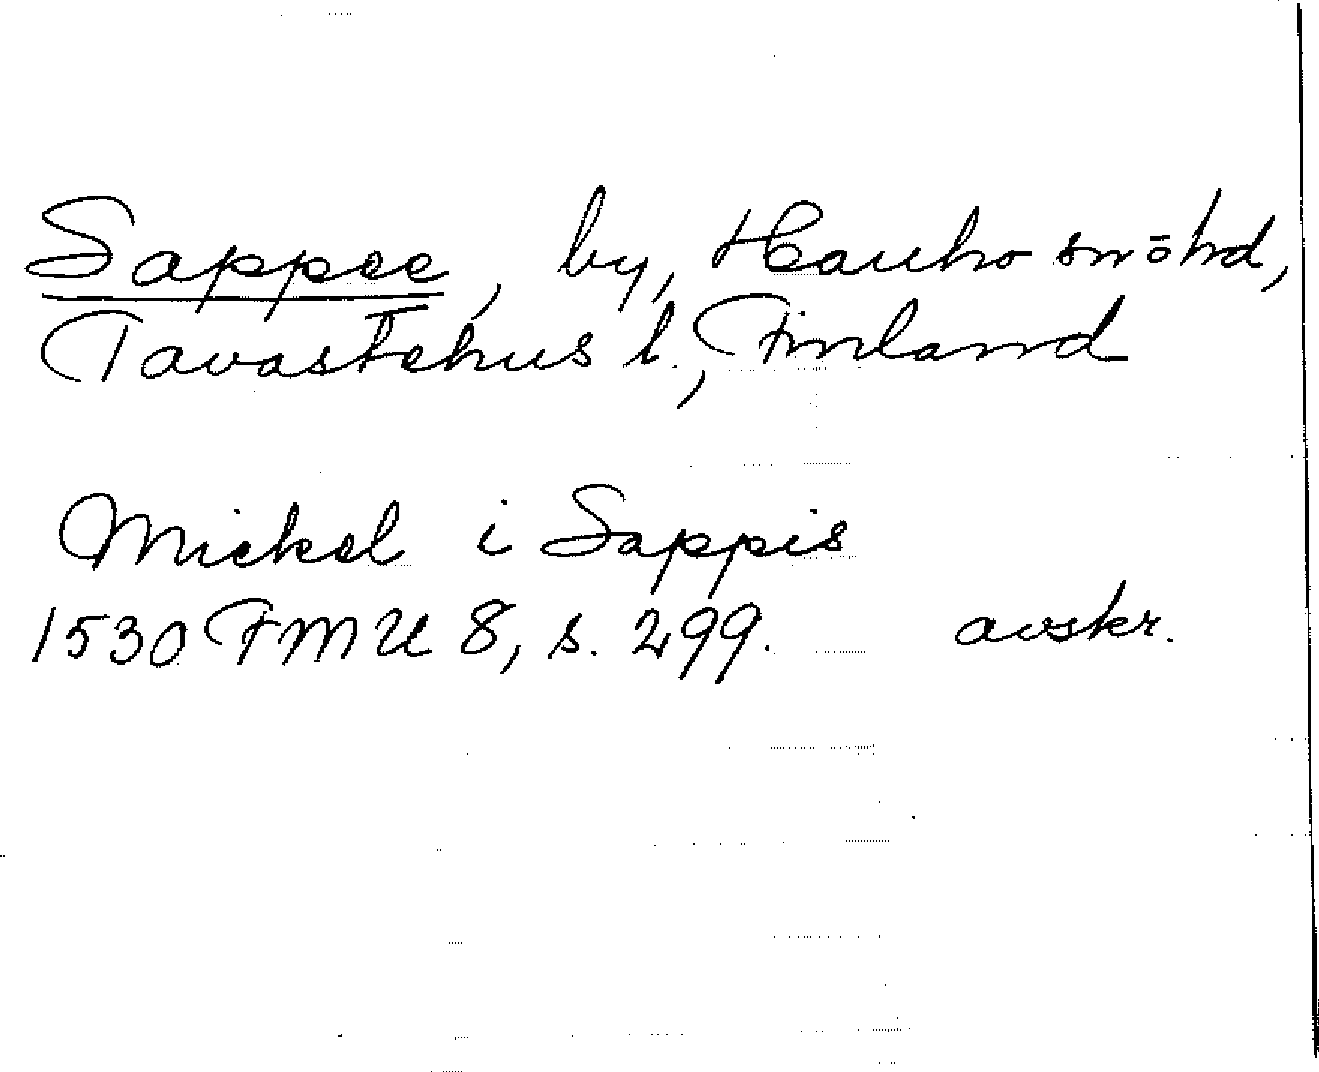 Sappee, by, Hauho sn o hd,
Tavastehus l., Finland
Mickel i Sappis
1530 FMU 8, s. 299. avskr.